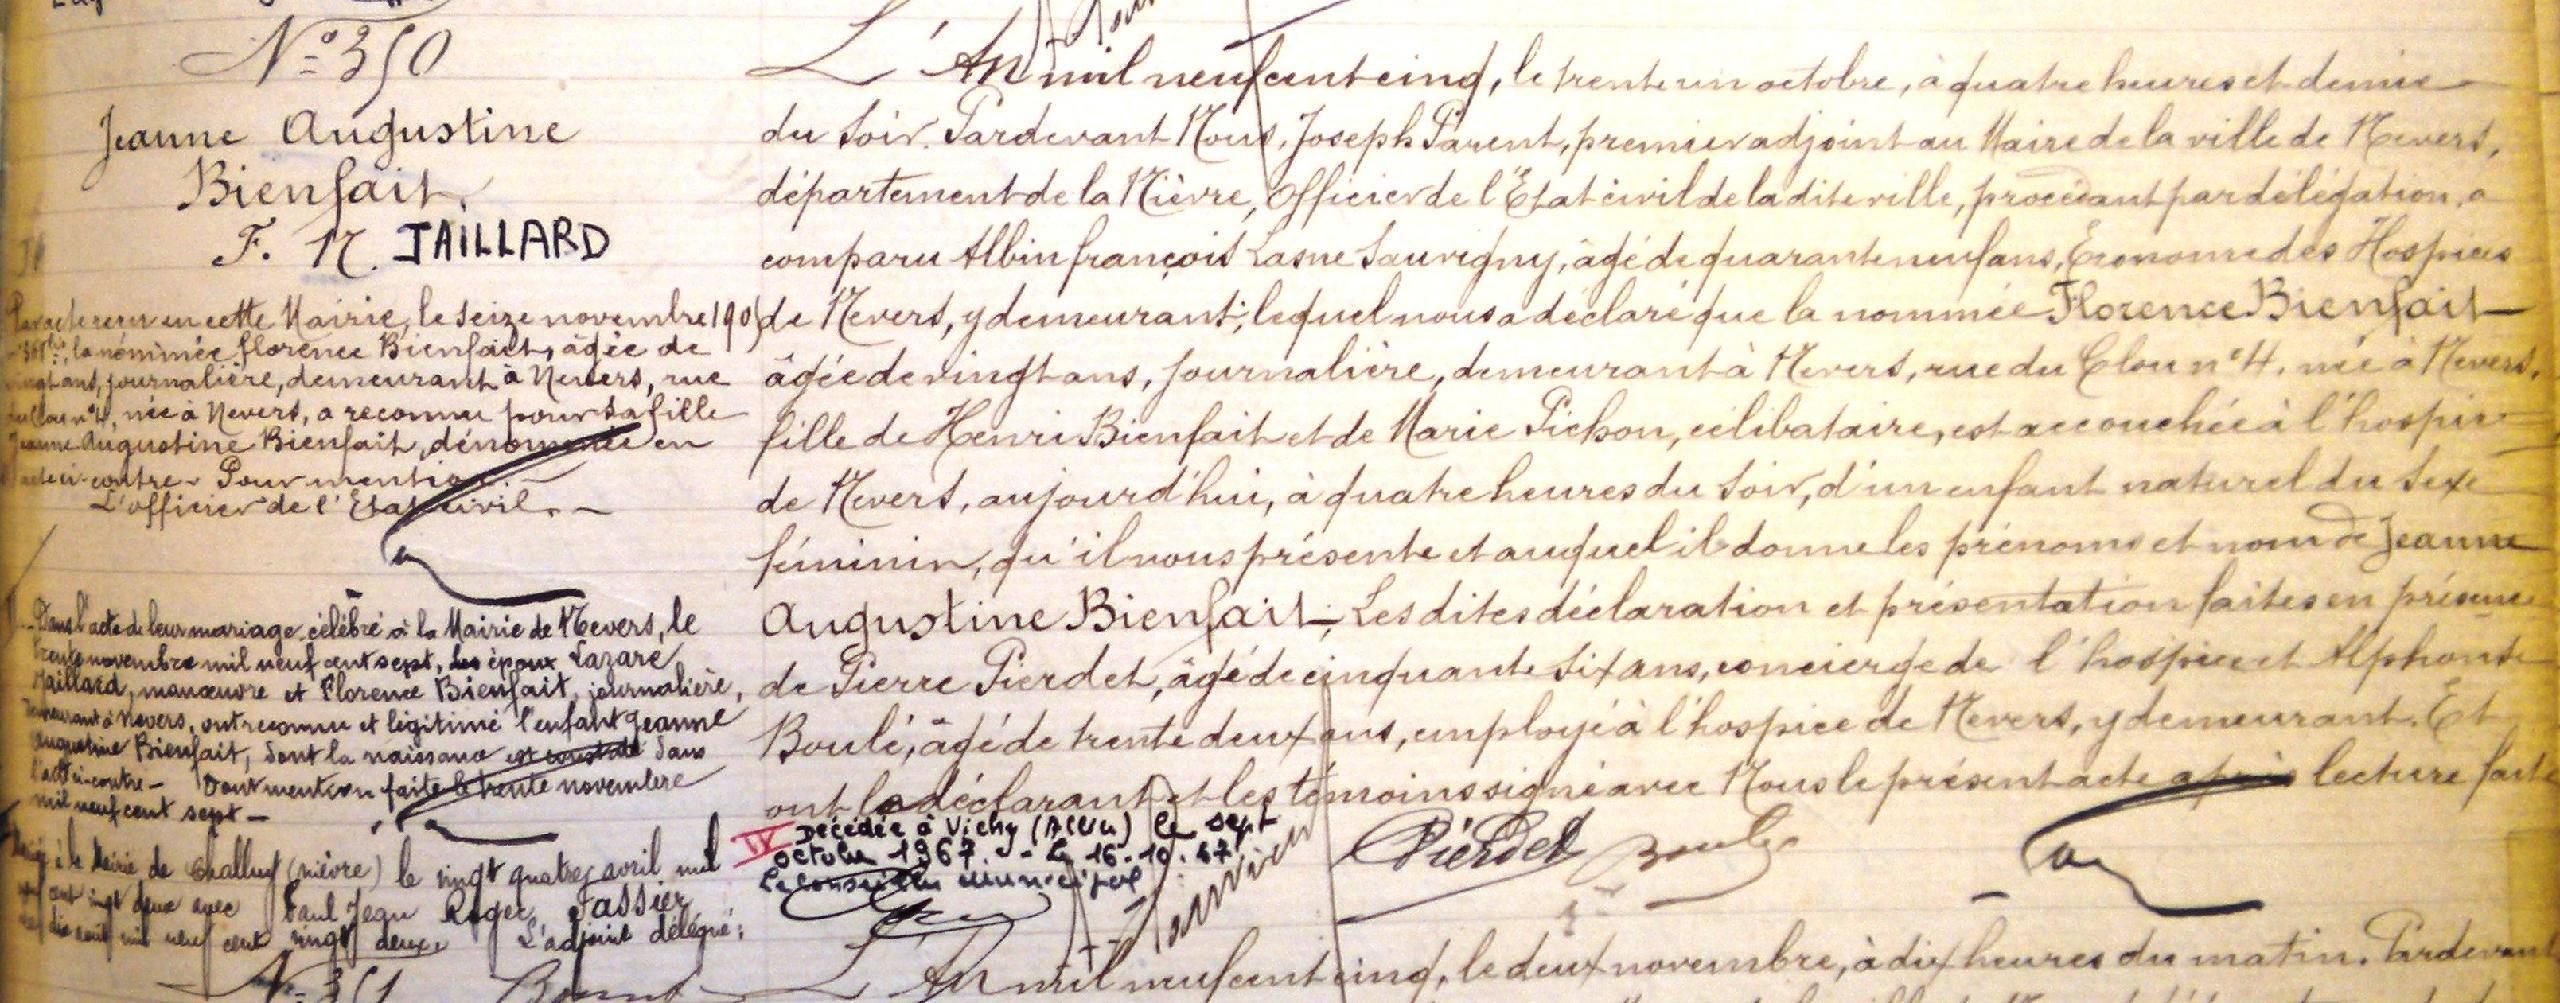 N° 350
Jeanne Augustine
Bienfait.
F. N. JAILLARD
Par acte reçu en cette Mairie, le seize novembre 1905
la nommée florence Bienfait, âgée de
vingt ans, journalière, demeurant à Nevers, rue
du Clou n° 4, née à Nevers, a reconnu pour sa fille
Jeanne Augustine Bienfait, dénommée en
acte ci-contre. Pour mention.
L'officier de l'Etat civil.
Dans l'acte de leur mariage célébré à la Mairie de Nevers, le
trente novembre mil neuf cent sept, les époux Lazare
Jaillard, manœuvre et Florence Bienfait, journalière,
demeurant à Nevers, ont reconnu et légitimé l'enfant Jeanne
Augustine Bienfait, dont la naissance est constatée dans
l'acte ci-contre - Dont mention faite le trente novembre
mil neuf cent sept -
à la Mairie de Challuy (nièvre) le vingt quatre avril mil
neuf cent vingt deux avec Paul Jean Roger Fassier
dix août mil neuf cent vingt deux. L'adjoint délégué :
L'An mil neuf cent cinq, le trente un octobre, à quatre heures et demie
du soir. Pardevant Nous, Joseph Parent, premier adjoint au Maire de la ville de Nevers,
département de la Nièvre, Officier de l'Etat civil de ladite ville, procédant par délégation, a
comparu Albin françois Lasne Sauvigny, âgé de quarante neuf ans, Econome des Hospices
de Nevers, y demeurant; lequel nous a déclaré que la nommée Florence Bienfait
âgée de vingt ans, journalière, demeurant à Nevers, rue du Clou n° 4, née à Nevers,
fille de Henri Bienfait et de Marie Pichon, célibataire, est accouchée à l'hospice
de Nevers, aujourd'hui, à quatre heures du soir, d'un enfant naturel du sexe
féminin, qu'il nous présente et auquel il donne les prénoms et nom de Jeanne
Augustine Bienfait; Lesdites déclaration et présentation faites en présence
de Pierre Pierdet, âgé de cinquante six ans, concierge de l'hospice et Alphonse
Boulé, âgé de trente deux ans, employé à l'hospice de Nevers, y demeurant. Et
ont le déclarant et les témoins signé avec Nous le présent acte après lecture faite
Décédée à Vichy (Allier) le sept
octobre 1967. - Le 16-10-67
Le Conseiller municipal
Pierdet Boulé
N° 351
L'An mil neuf cent cinq, le deux novembre, à dix heures du matin. Pardevant